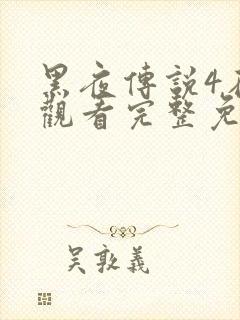 黑夜傳説4
觀看完整免
吴敦義